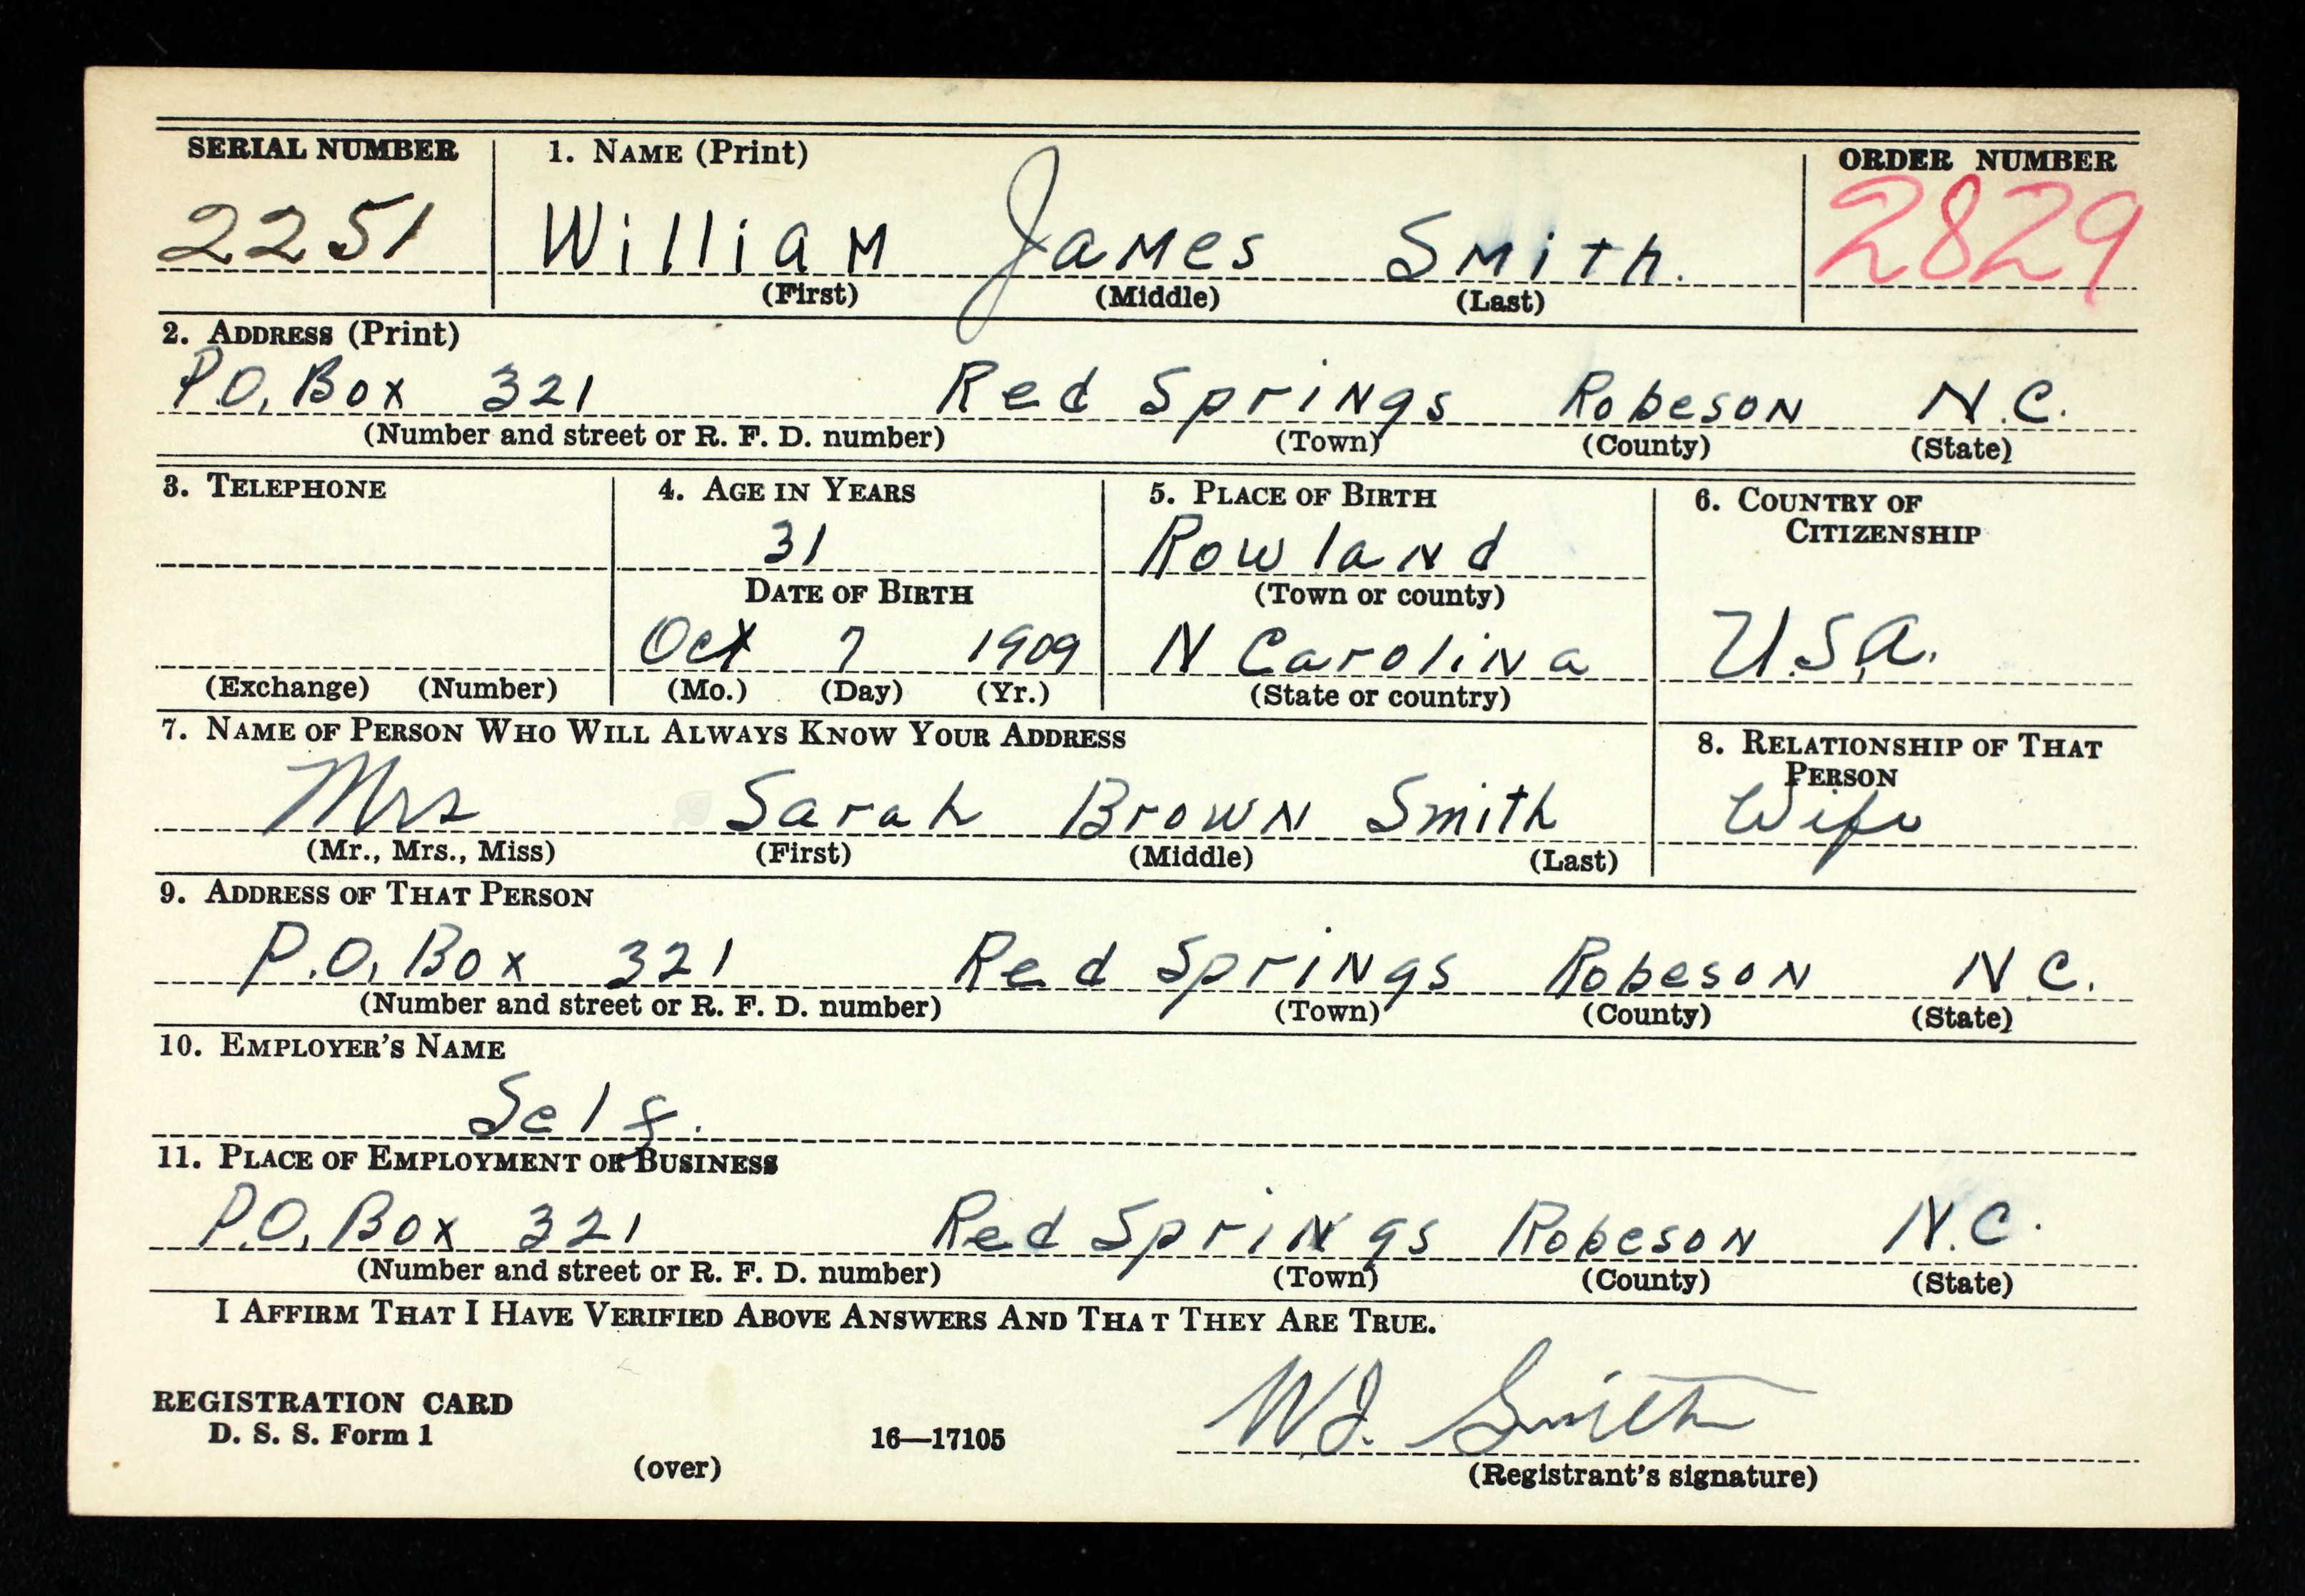 SERIAL NUMBER 1. NAME (Print) ORDER NUMBER
2251 William James Smith. 2829
(First) (Middle) (Last)
2. ADDRESS (Print)
P.O. Box 321 Red Springs Robeson N.C.
(Number and street or R. F. D. number) (Town) (County) (State)
3. TELEPHONE 4. AGE IN YEARS 5. PLACE OF BIRTH 6. COUNTRY OF
CITIZENSHIP
31 Rowland
DATE OF BIRTH (Town or county)
Oct 7 1909 N Carolina U.S.A.
(Exchange) (Number) (Mo.) (Day) (Yr.) (State or country)
7. NAME OF PERSON WHO WILL ALWAYS KNOW YOUR ADDRESS 8. RELATIONSHIP OF THAT
PERSON
Mrs Sarah Brown Smith Wife
(Mr., Mrs., Miss) (First) (Middle) (Last)
9. ADDRESS OF THAT PERSON
P.O. Box 321 Red Springs Robeson N.C.
(Number and street or R. F. D. number) (Town) (County) (State)
10. EMPLOYER'S NAME
Self.
11. PLACE OF EMPLOYMENT OR BUSINESS
P.O. Box 321 Red Springs Robeson N.C.
(Number and street or R. F. D. number) (Town) (County) (State)
I AFFIRM THAT I HAVE VERIFIED ABOVE ANSWERS AND THAT THEY ARE TRUE.
REGISTRATION CARD
D. S. S. Form 1 16—17105 WJ. Smith
(over) (Registrant's signature)